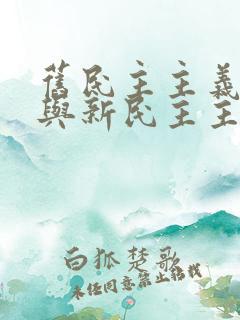 舊民主主義
與新民主主
白狐楚歌
未經同意禁止轉載